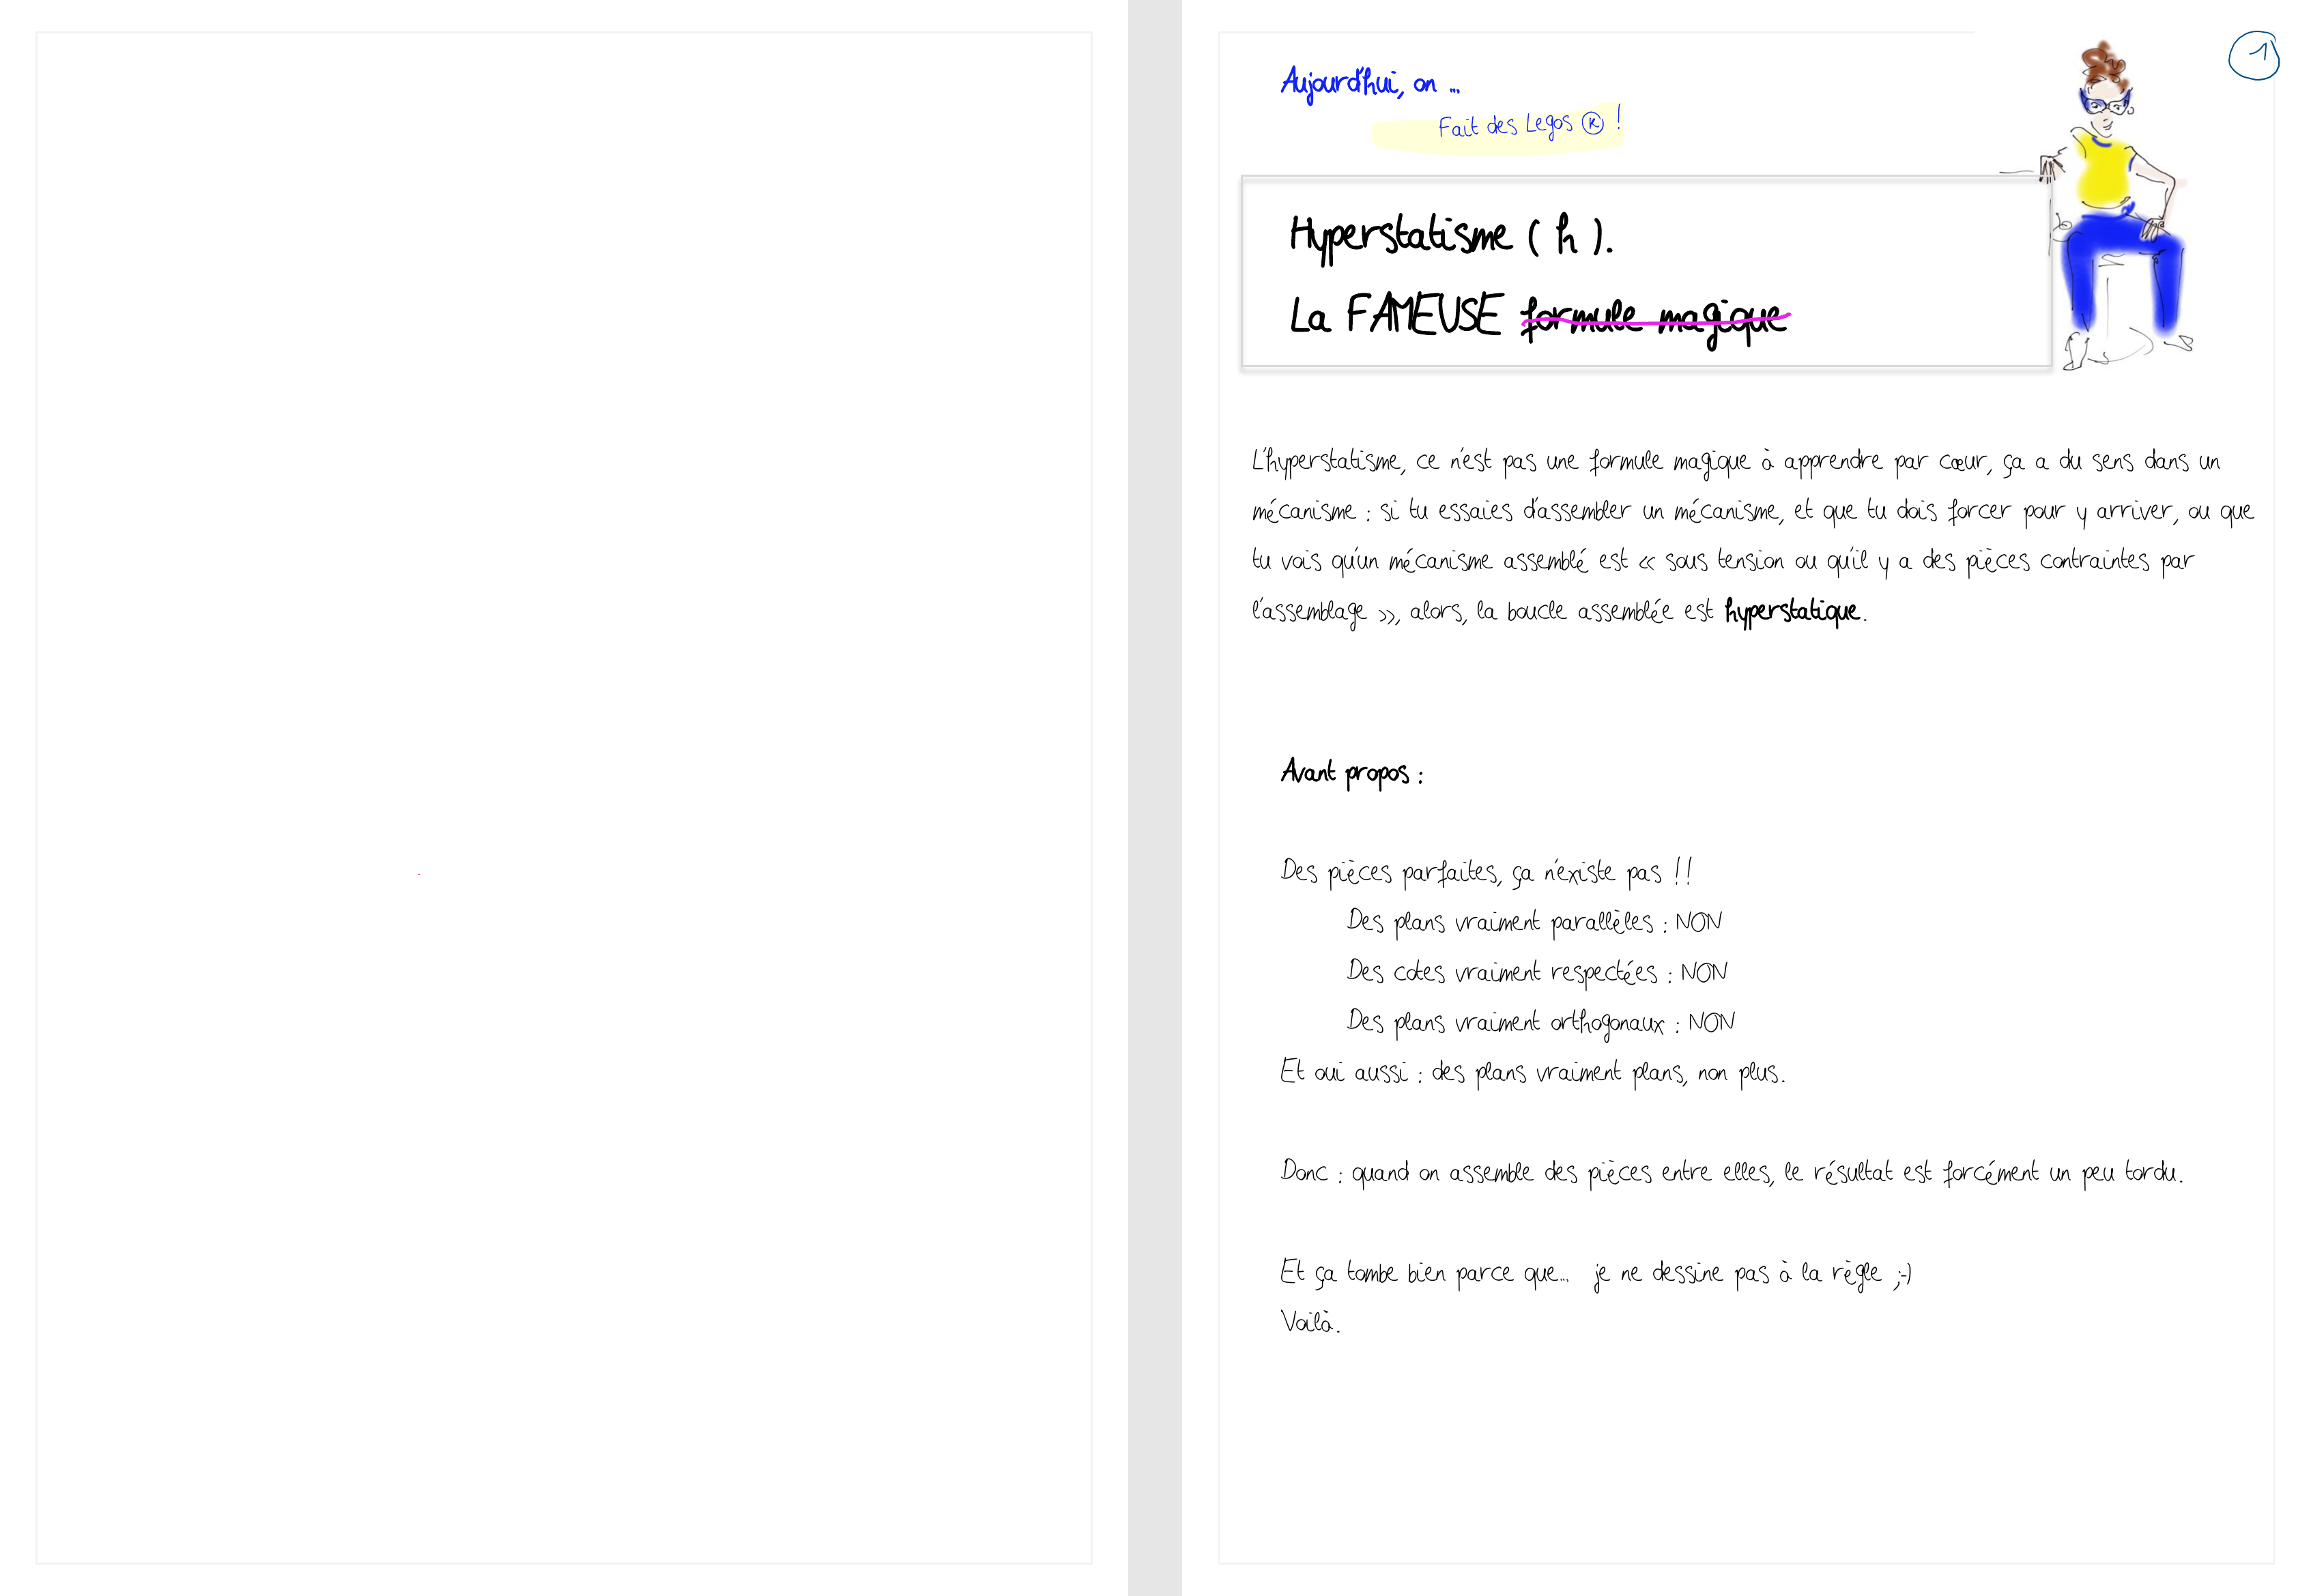 1
Aujourd'hui, on ...
Fait des Legos ® !
Hyperstatisme ( h ).
La FAMEUSE formule magique
L'hyperstatisme, ce n'est pas une formule magique à apprendre par cœur, ça a du sens dans un
mécanisme : si tu essaies d'assembler un mécanisme, et que tu dois forcer pour y arriver, ou que
tu vois qu'un mécanisme assemblé est « sous tension ou qu'il y a des pièces contraintes par
l'assemblage », alors, la boucle assemblée est hyperstatique.
Avant propos :
Des pièces parfaites, ça n'existe pas !!
Des plans vraiment parallèles : NON
Des cotes vraiment respectées : NON
Des plans vraiment orthogonaux : NON
Et oui aussi : des plans vraiment plans, non plus.
Donc : quand on assemble des pièces entre elles, le résultat est forcément un peu tordu.
Et ça tombe bien parce que... je ne dessine pas à la règle ;-)
Voilà.